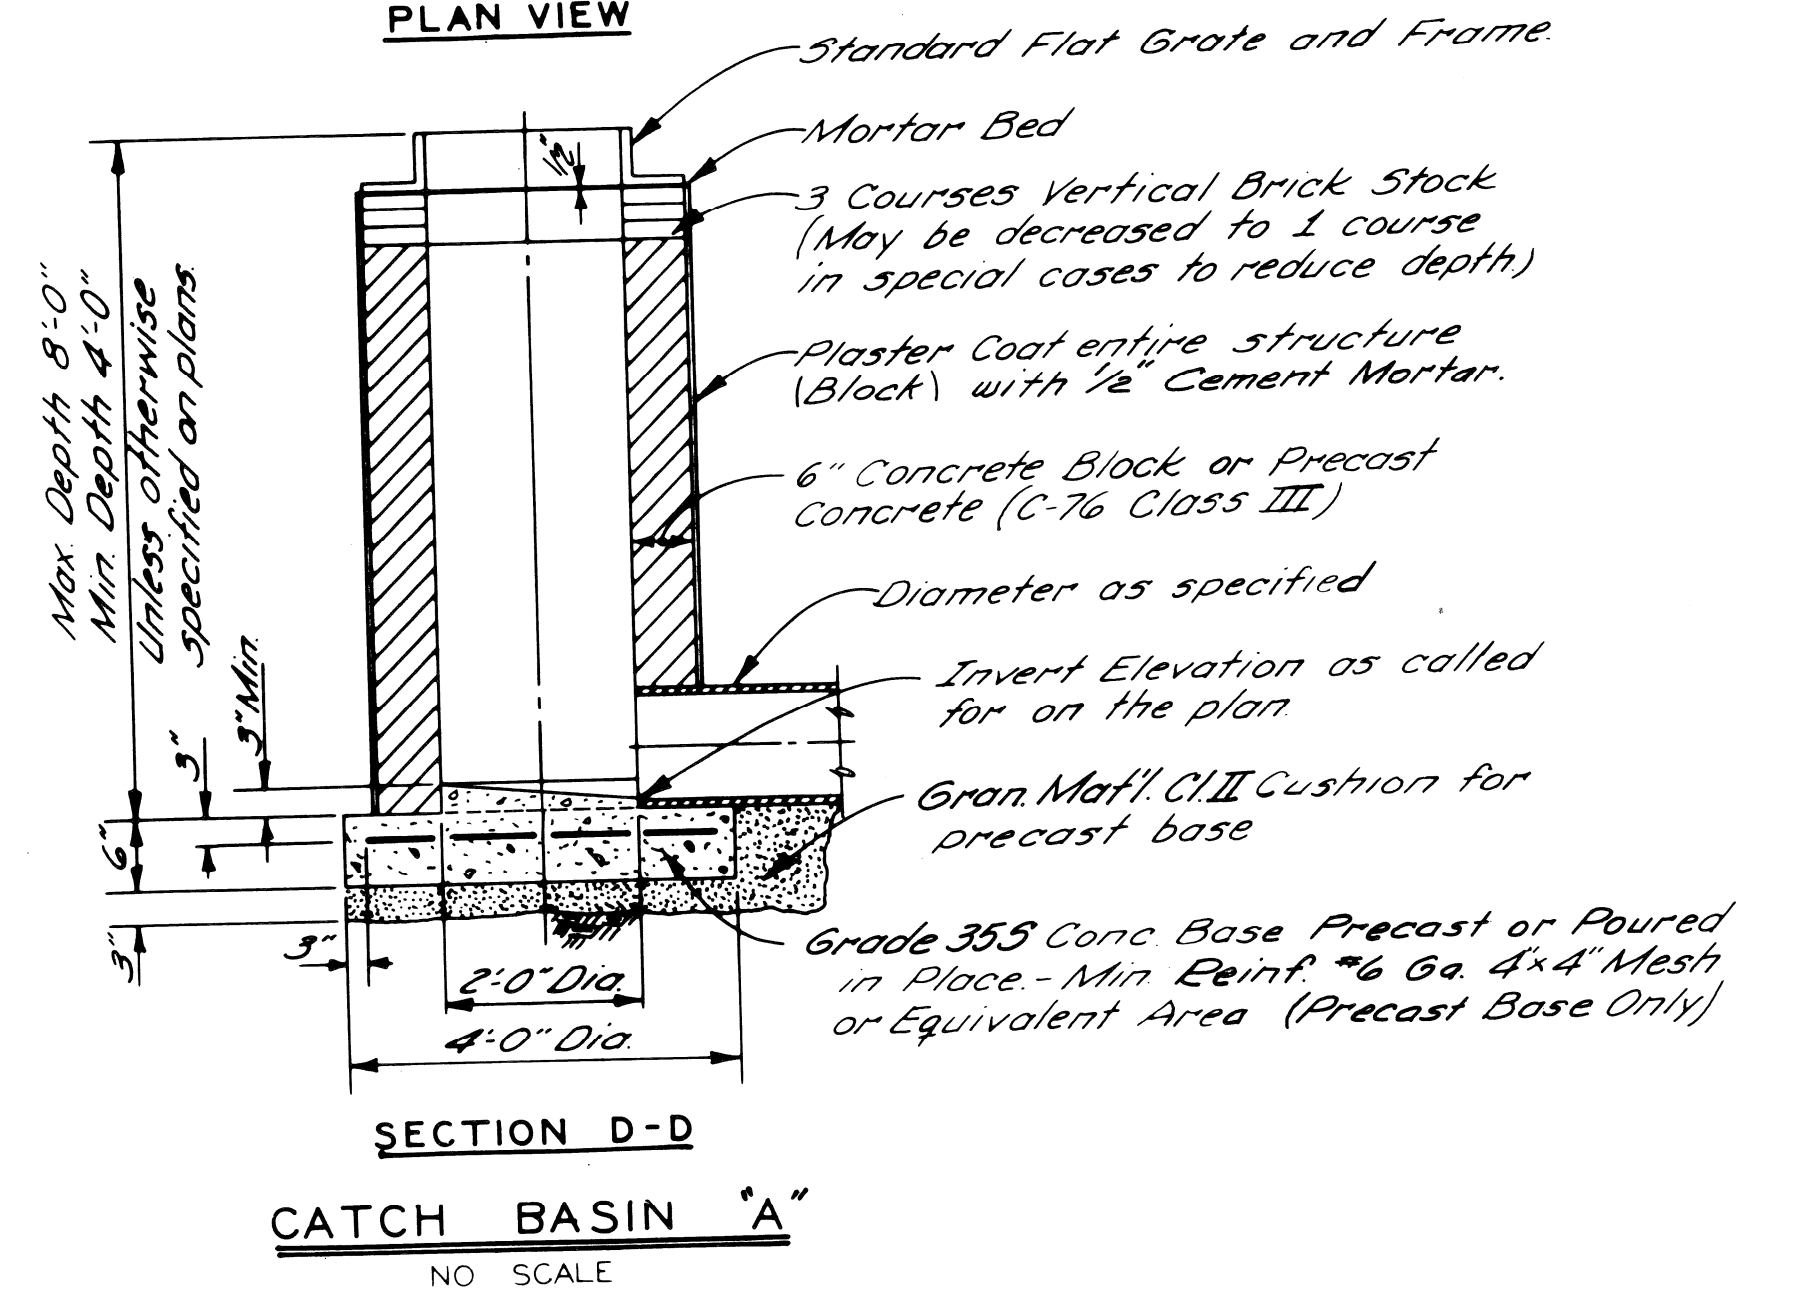 PLAN VIEW
Standard Flat Grate and Frame.
Mortar Bed
1/2"
3 Courses Vertical Brick Stock
(May be decreased to 1 course
in special cases to reduce depth.)
Plaster Coat entire structure
(Block) with 1/2" Cement Mortar.
6" Concrete Block or Precast
Concrete (C-76 Class III)
Diameter as specified
Invert Elevation as called
for on the plan.
Gran. Mat'l. Cl. II Cushion for
precast base
Grade 35S Conc. Base Precast or Poured
in Place. - Min. Reinf. #6 Ga. 4"x4" Mesh
or Equivalent Area (Precast Base Only)
Max. Depth 8'-0"
Min. Depth 4'-0"
Unless otherwise
specified on plans.
3" Min.
3"
6"
3"
3"
2'-0" Dia.
4'-0" Dia.
SECTION D-D
CATCH BASIN "A"
NO SCALE